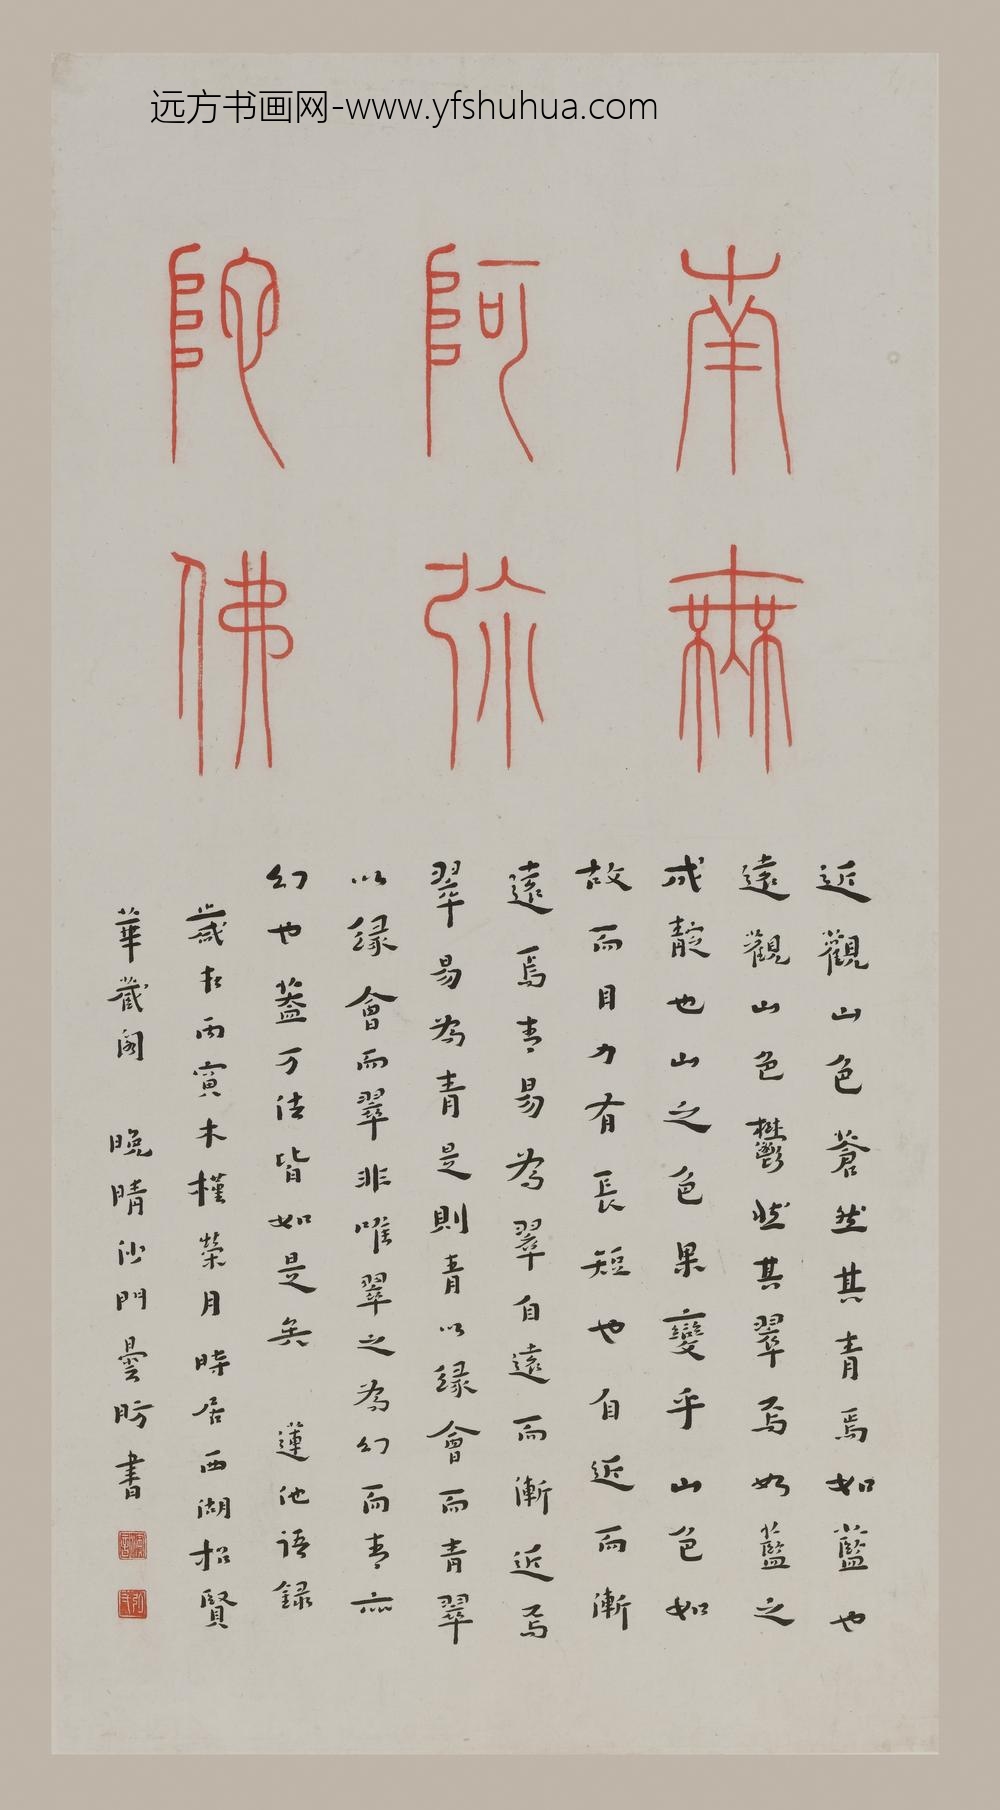 远方书画网-www.yfshuhua.com
南無
阿弥
陀佛
近觀山色蒼然其青焉如藍也
遠觀山色鬱然其翠焉如藍之
成靛也山之色果變乎山色如
故而目力有長短也自近而漸
遠焉青易為翠自遠而漸近焉
翠易為青是則青以緣會而青翠
以緣會而翠非唯翠之為幻而青亦
幻也蓋万法皆如是矣 蓮池語錄
歲在丙寅木槿榮月時居西湖招賢
華嚴閣 晚晴沙門曇昉書